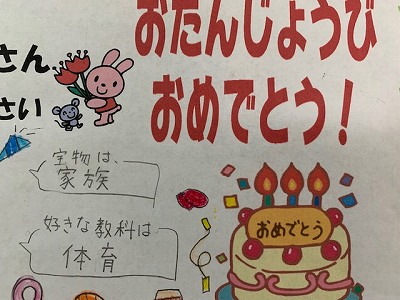 おたんじょうび
おめでとう！
さん
さい
宝物は、
家族
好きな教科は
体育
おめでとう